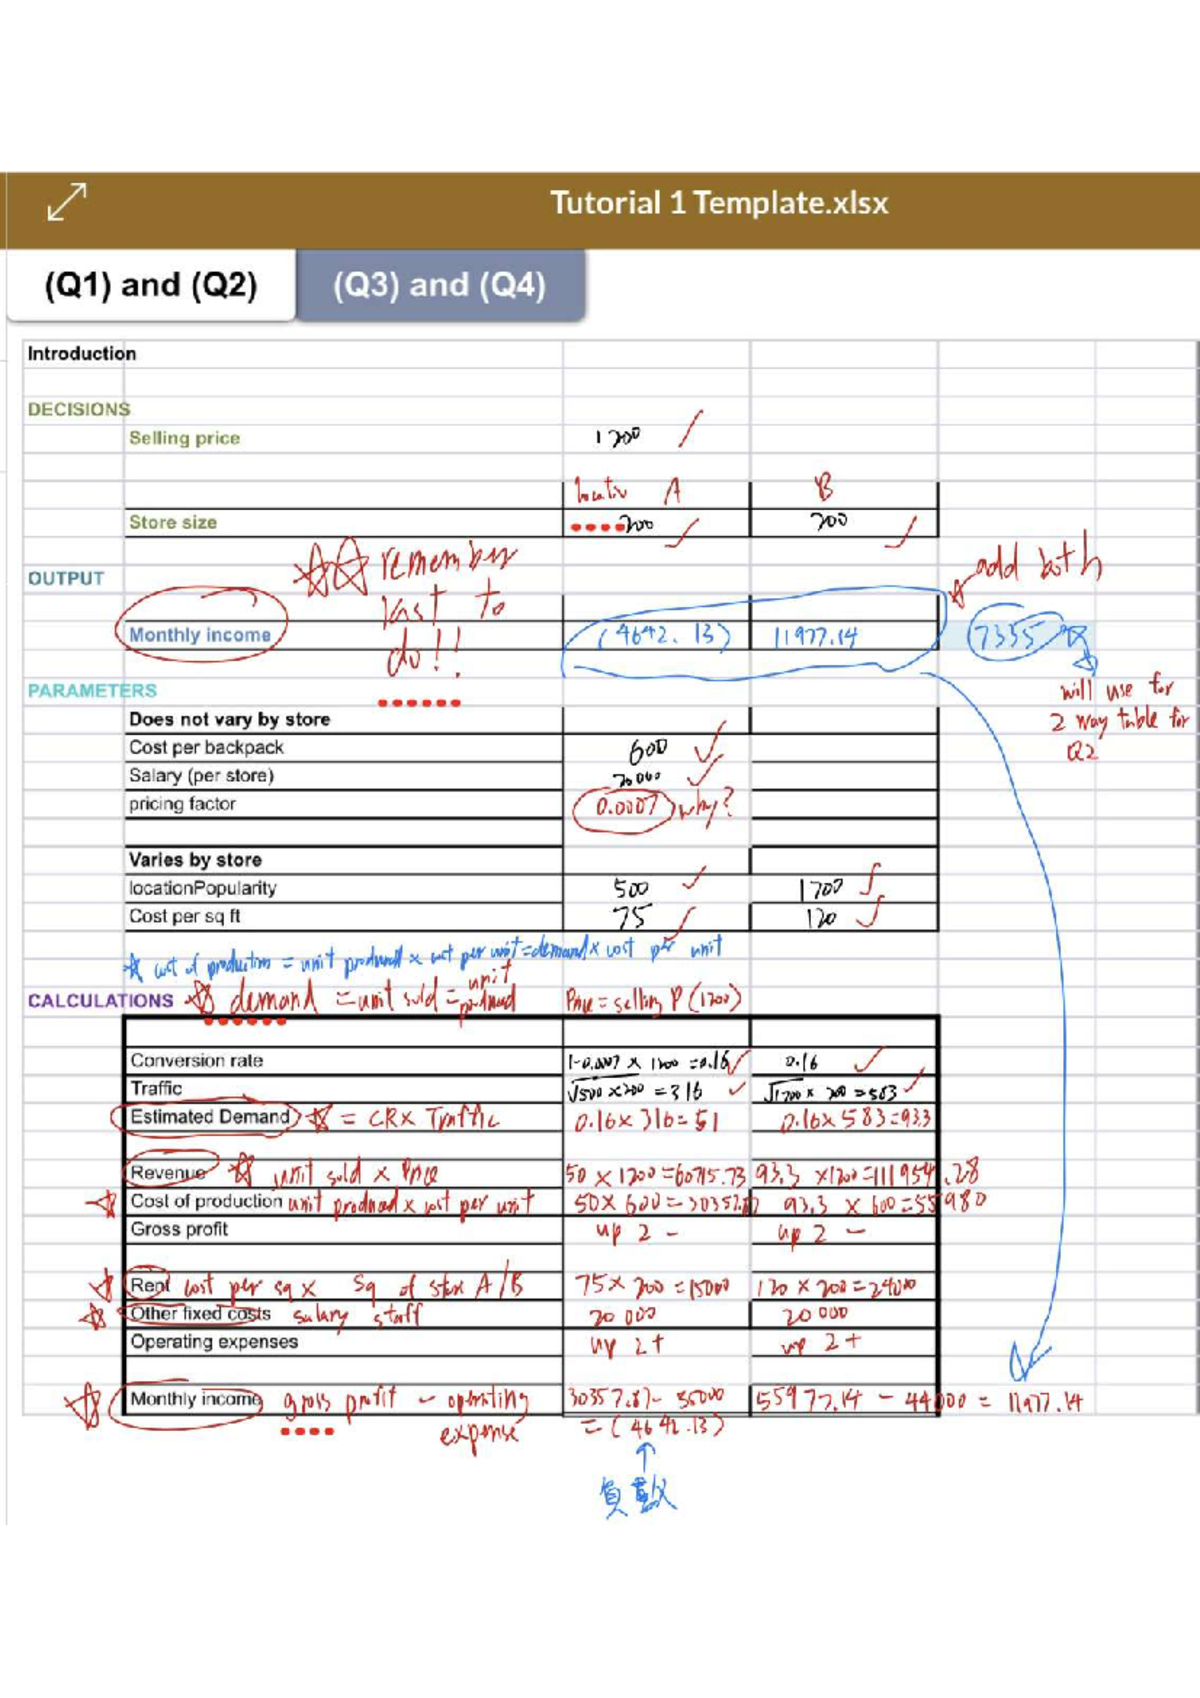 Tutorial 1 Template.xlsx
(Q1) and (Q2) (Q3) and (Q4)
Introduction
DECISIONS
Selling price 1200
A B
Store size 200 200
remember
last to
do!!
OUTPUT
add both
Monthly income (4642.13) 11977.14 7335
will use for
2 way table for
Q2
PARAMETERS
Does not vary by store
Cost per backpack 600
Salary (per store) 20000
pricing factor 0.0007 why?
Varies by store
locationPopularity 500 1700
Cost per sq ft 75 120
cost of production = unit produced x cost per unit = demand x cost per unit
CALCULATIONS demand = unit sold = unit produced Price = selling P (1200)
Conversion rate 1-0.0007 x 1200 = 0.16 0.16
Traffic √500 x 200 = 316 √1700 x 200 = 583
Estimated Demand = CR x Traffic 0.16 x 316 = 51 0.16 x 583 = 93.3
Revenue unit sold x Price 50 x 1200 = 60715.73 93.3 x 1200 = 111954.28
Cost of production unit produced x cost per unit 50 x 600 = 30357.87 93.3 x 600 = 55980
Gross profit up 2 - up 2 -
Rent cost per sq x sq of store A/B 75 x 200 = 15000 120 x 200 = 24000
Other fixed costs salary staff 20 000 20 000
Operating expenses up 2 + up 2 +
Monthly income gross profit - operating expense 30357.87 - 35000 = (4642.13) 55977.14 - 44000 = 11977.14
負數